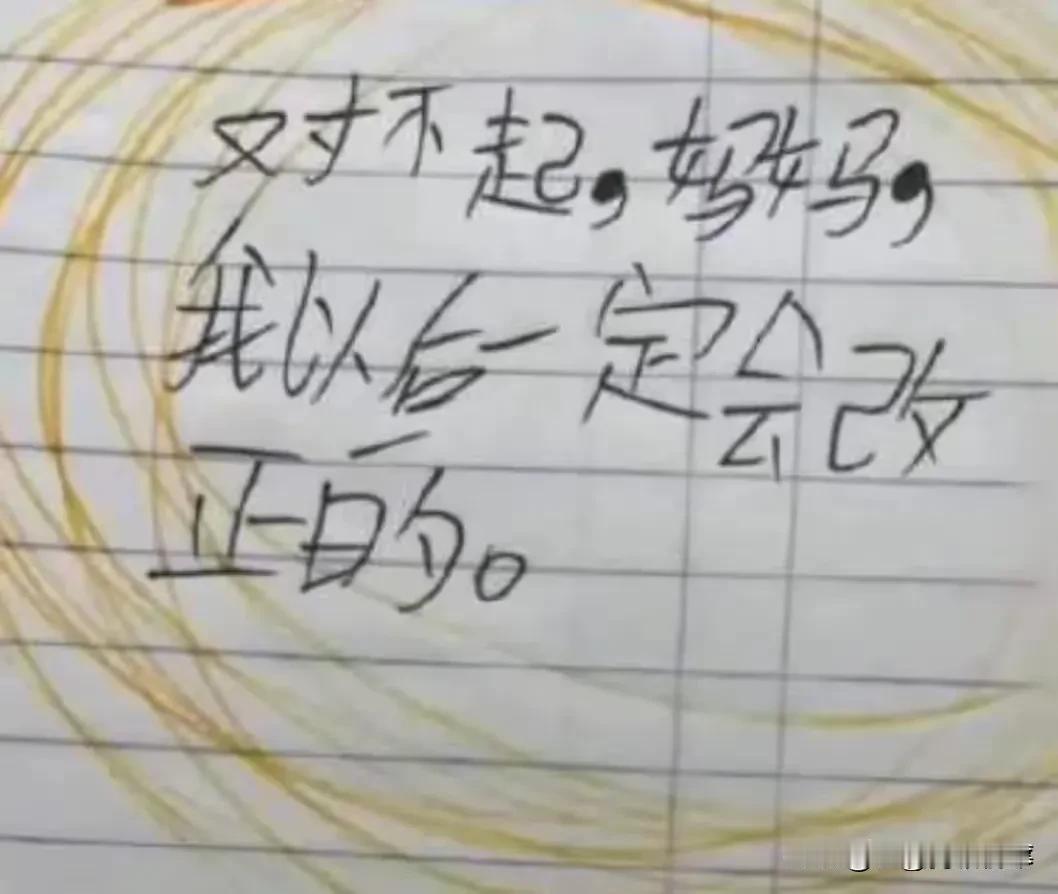 对不起,妈妈,
我以后一定会改
正的。